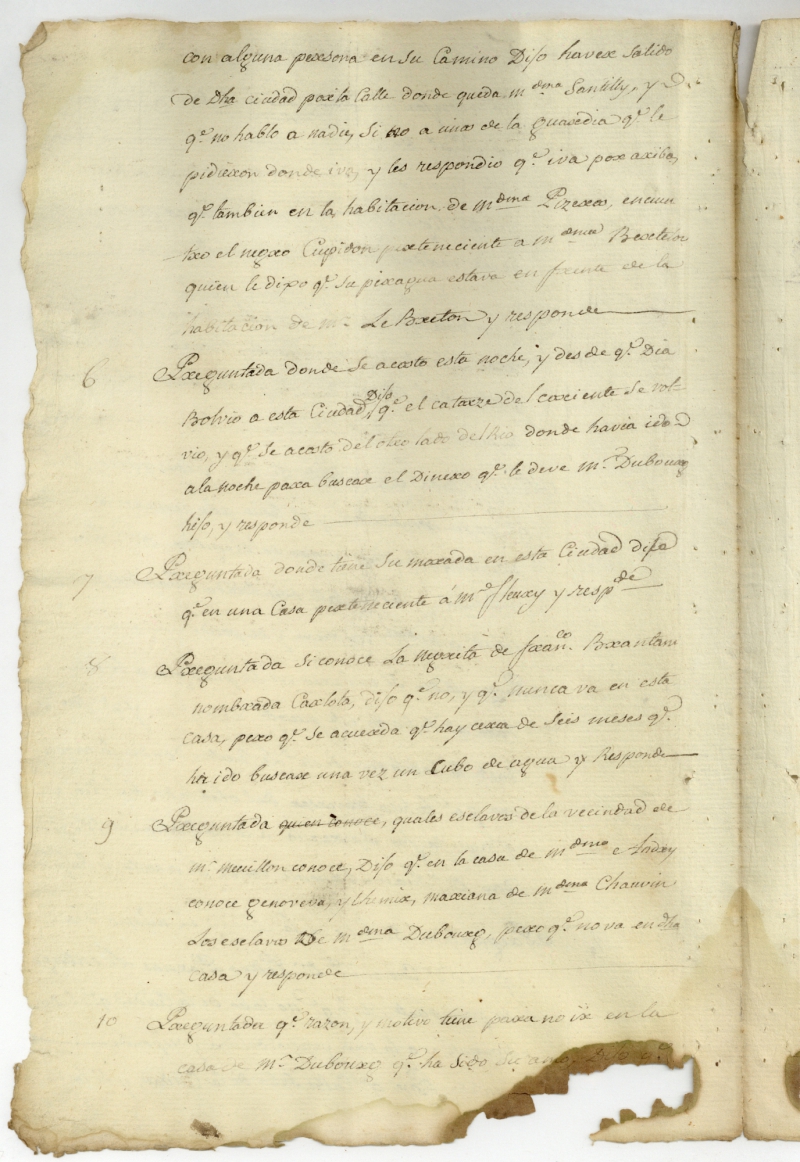 con alguna persona en su Camino Dijo haver Salido
de Dha ciudad por la Calle donde queda m.dma Santilly, y
q.e no hablo a nadie, Si no a unos de la guardia q.e le
pidieron donde iva, y les respondio q.e iva por arriba,
q.e tambien en la habitacion de m.dma encun
tro el negro Cupidon perteneciente a m.dma
quien le dixo q.e su piragua estava en frente de la
habitacion de m.r Le Breton y responde
6 Preguntada donde se acosto esta noche, y desde q.e Dia
Bolvio a esta Ciudad Dijo q.e el catorze del corriente se vol-
vio, y q.e se acosto del otro lado del Rio donde havia ido
a la noche para buscar el Dinero q.e le deve m.r Dubourg
hijo, y responde
7 Preguntada donde tiene su morada en esta Ciudad dijo
q.e en una Casa perteneciente á m.r y resp.de
8 Preguntada si conoce La negrita de fran.co Brantan
nombrada Carlota, dijo q.e no, y q.e nunca va en esta
casa, pero q.e se acuerda q.e hay cerca de Seis meses q.e
ha ido buscar una vez un Cubo de agua y Responde
9 Preguntada quien conoce, quales esclavos de la vecindad de
m.r conoce, Dijo q.e en la casa de m.dma
conoce genoveva, y mariana de m.dma Chauvin
Los esclavos De m.dma Dubourg, pero q.e no va en dha
casa y responde
10 Preguntada q.e razon, y motivo tiene para no ir en la
casa de m.r Dubourg q.e ha sido su amo, Dijo q.e